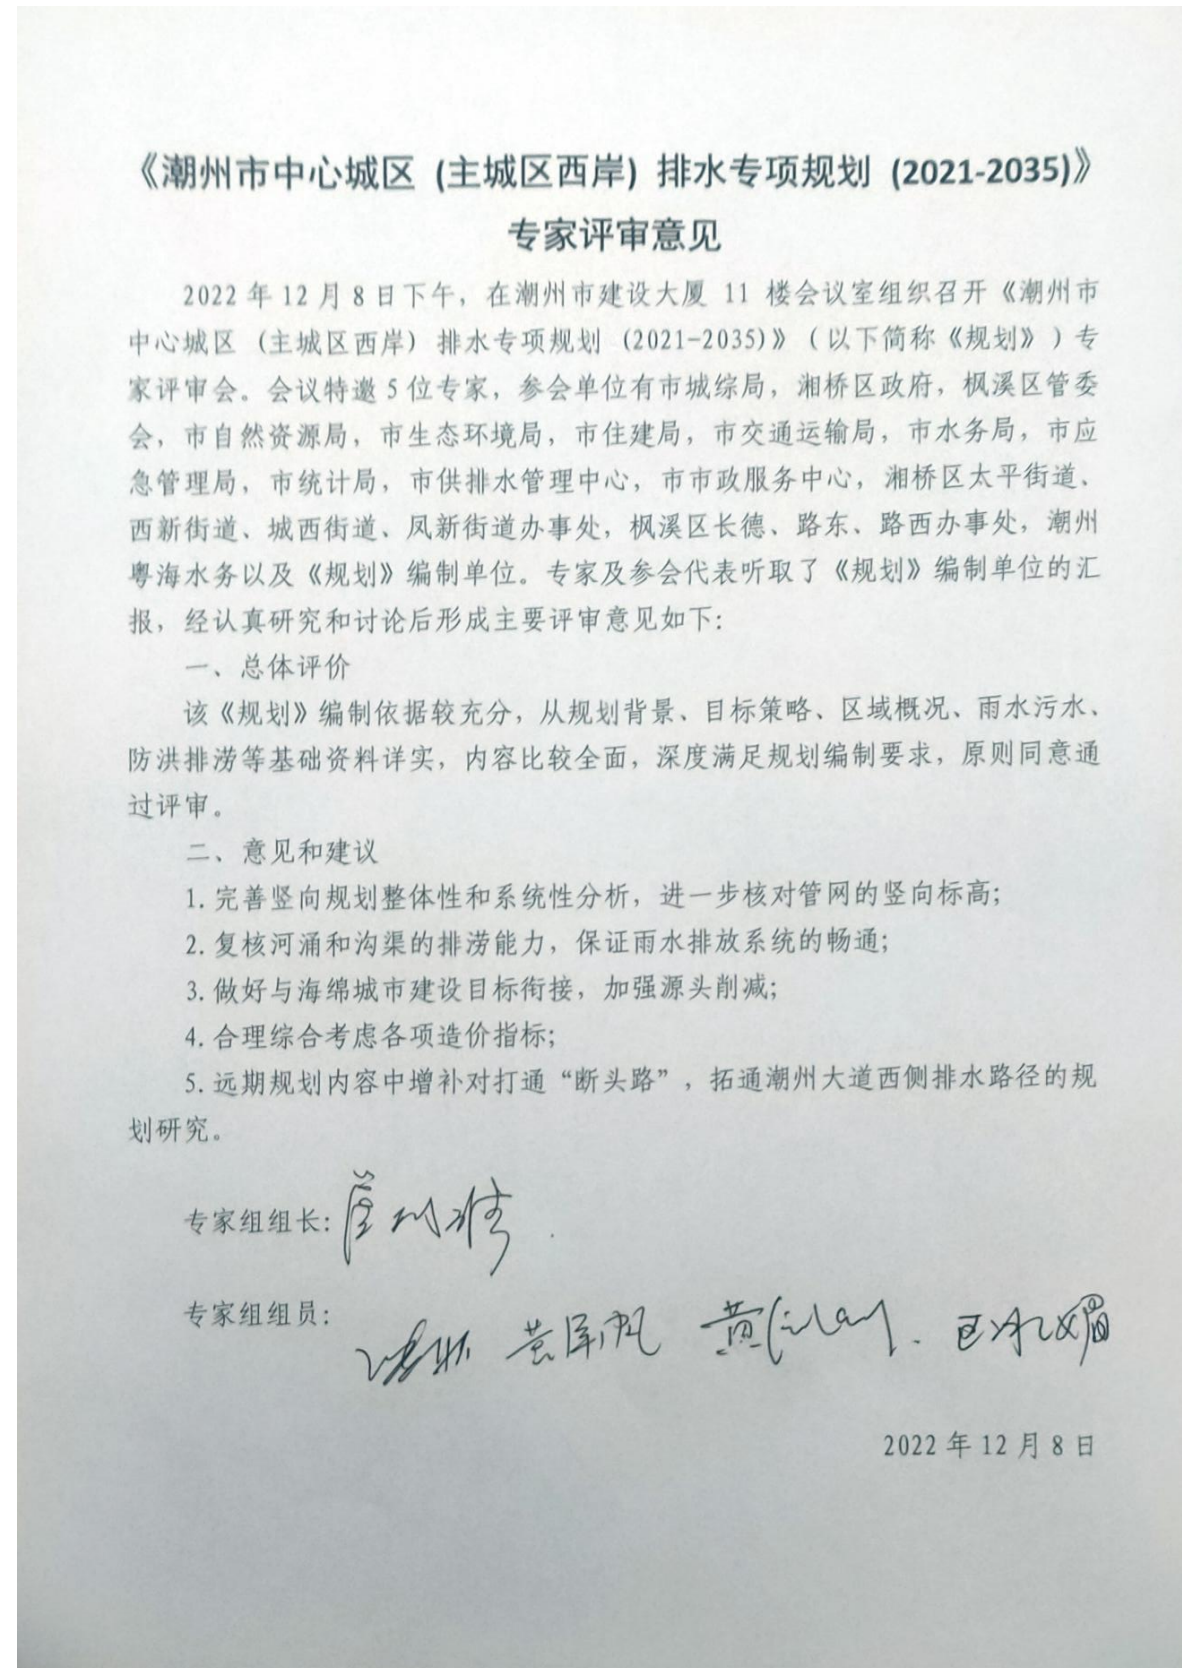 《潮州市中心城区（主城区西岸）排水专项规划（2021-2035)》
专家评审意见
2022年12月8日下午，在潮州市建设大厦 11 楼会议室组织召开《潮州市
中心城区（主城区西岸）排水专项规划（2021-2035)》（以下简称《规划》）专
家评审会。会议特邀5位专家，参会单位有市城综局，湘桥区政府，枫溪区管委
会，市自然资源局，市生态环境局，市住建局，市交通运输局，市水务局，市应
急管理局，市统计局，市供排水管理中心，市市政服务中心，湘桥区太平街道、
西新街道、城西街道、凤新街道办事处，枫溪区长德、路东、路西办事处，潮州
粤海水务以及《规划》编制单位。专家及参会代表听取了《规划》编制单位的汇
报，经认真研究和讨论后形成主要评审意见如下：
一、总体评价
该《规划》编制依据较充分，从规划背景、目标策略、区域概况、雨水污水、
防洪排涝等基础资料详实，内容比较全面，深度满足规划编制要求，原则同意通
过评审。
二、意见和建议
1.完善竖向规划整体性和系统性分析，进一步核对管网的竖向标高；
2.复核河涌和沟渠的排涝能力，保证雨水排放系统的畅通；
3.做好与海绵城市建设目标衔接，加强源头削减；
4.合理综合考虑各项造价指标；
5.远期规划内容中增补对打通“断头路”，拓通潮州大道西侧排水路径的规
划研究。
专家组组长：
专家组组员：
2022年12月8日